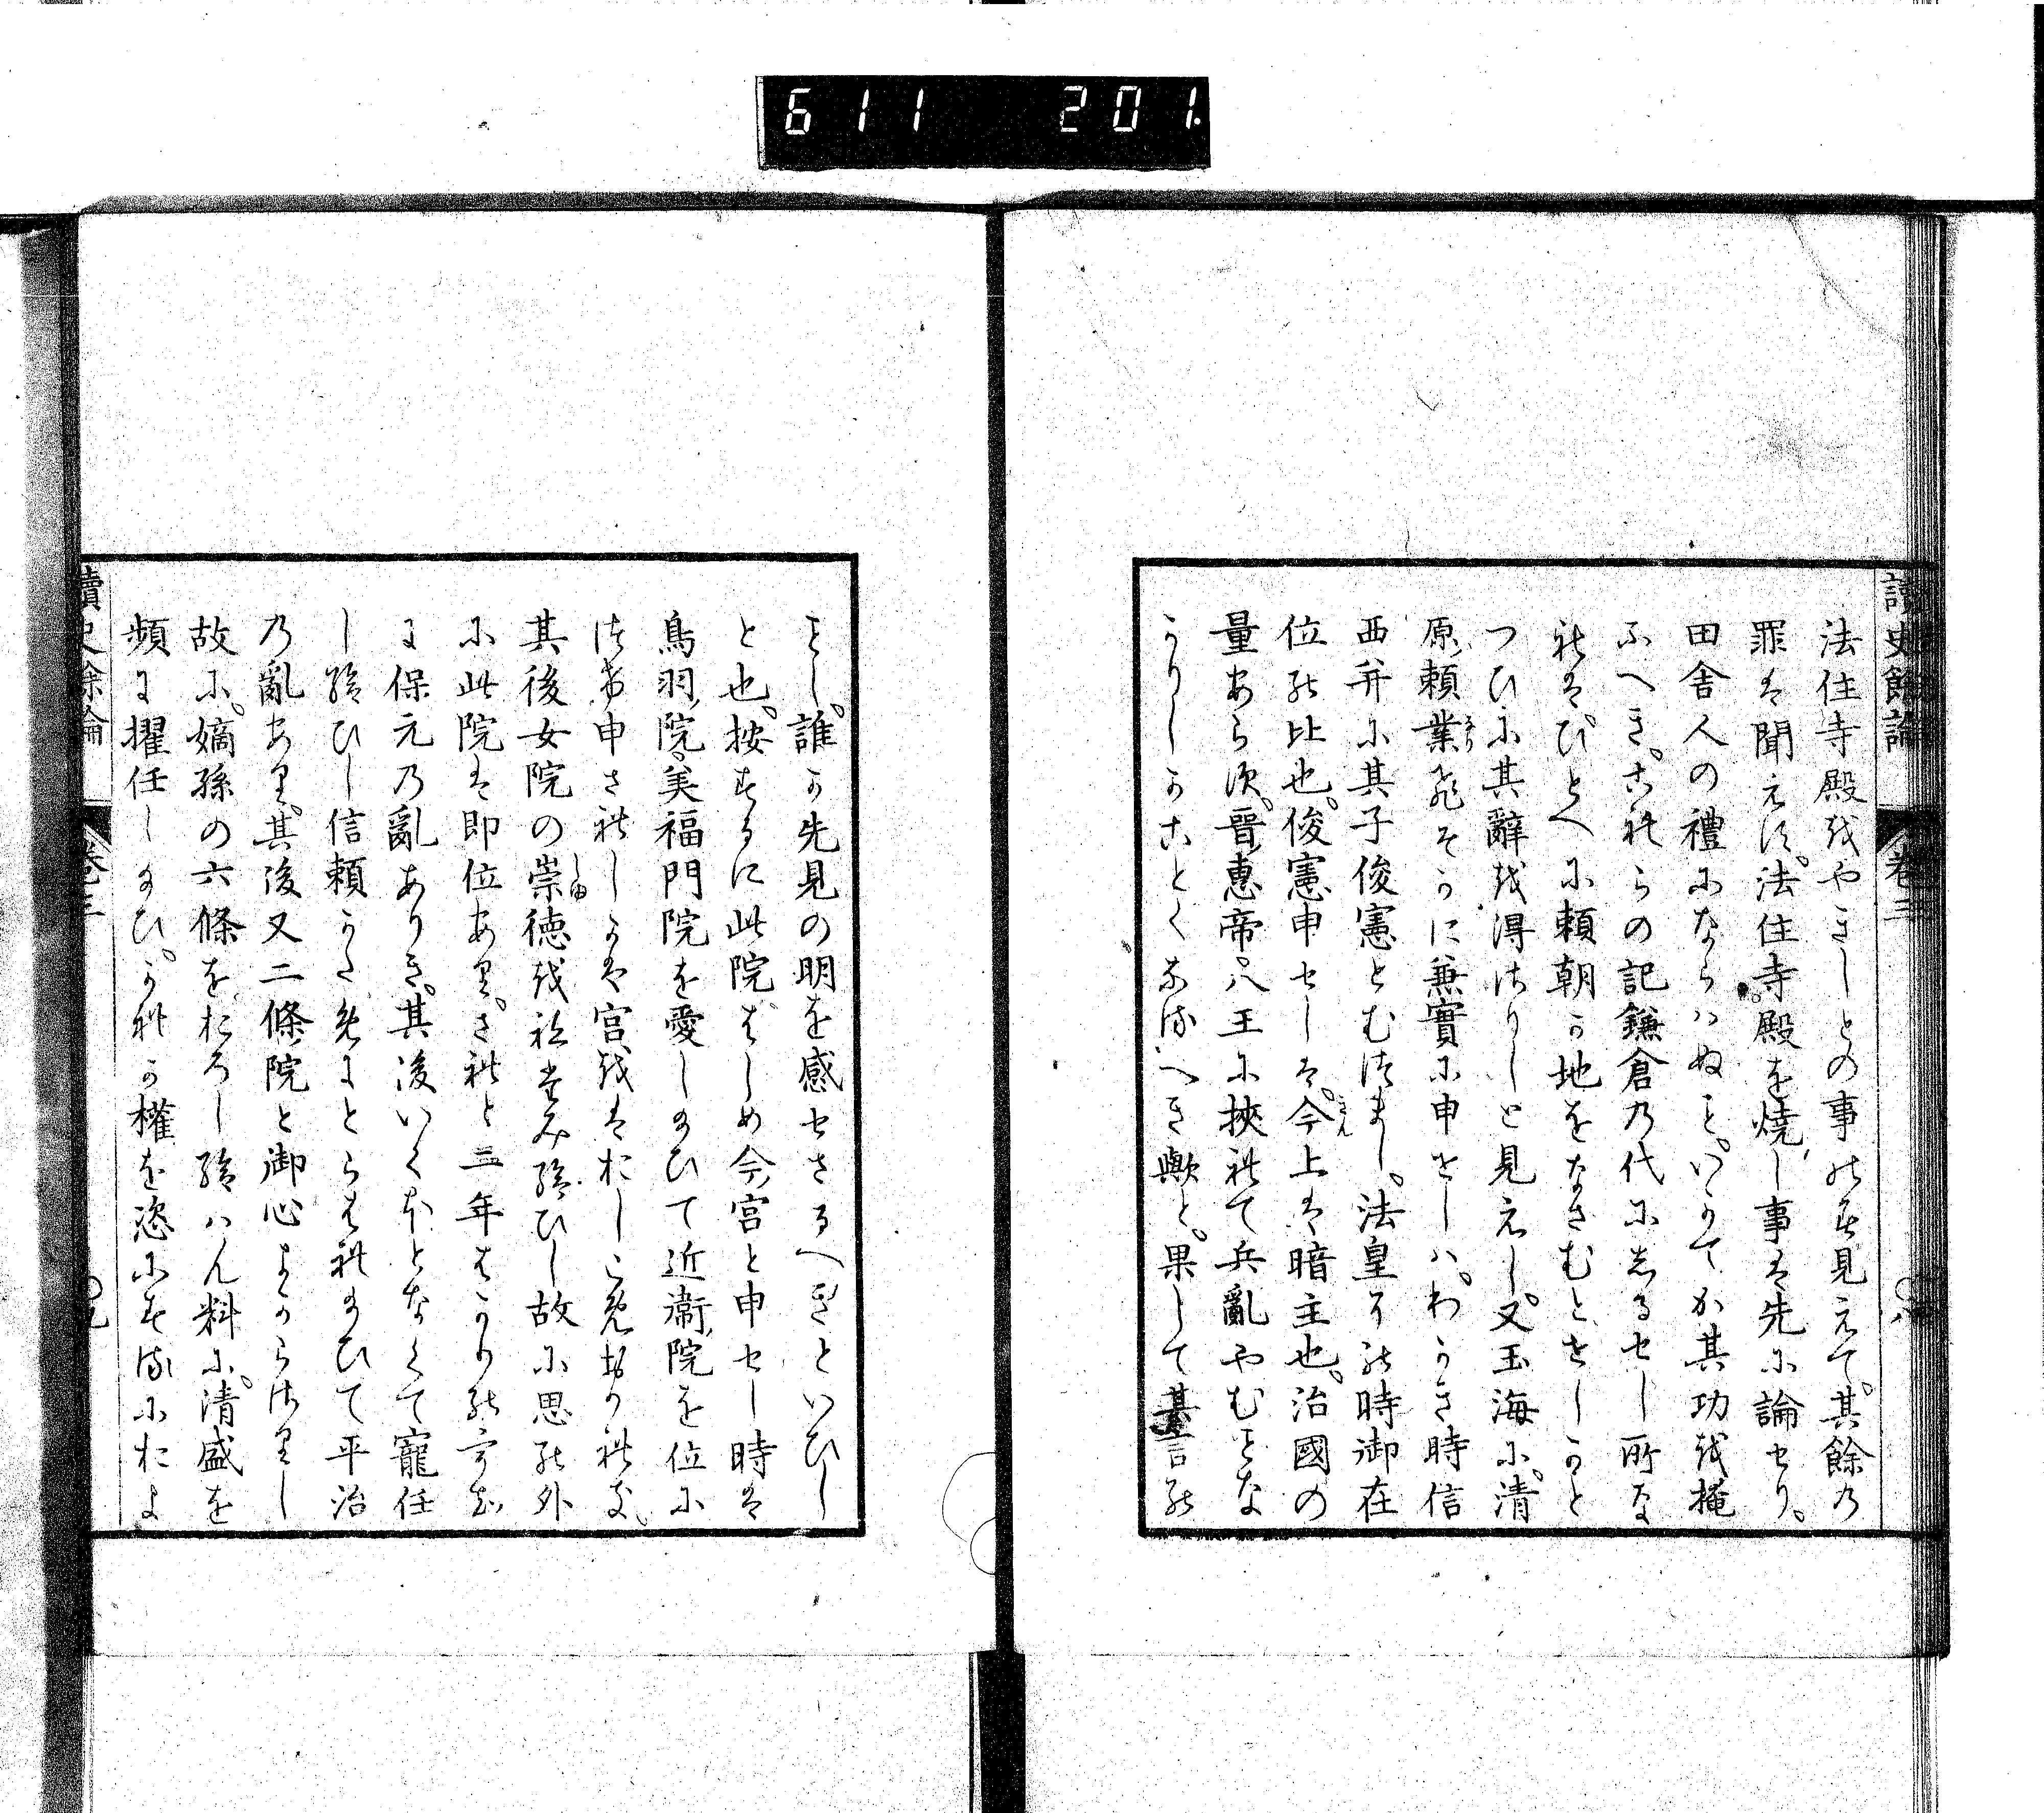 611 201.
讀史餘論 卷三
法住寺殿をやきしとの事のみ見えて。其餘の
罪は聞えす。法住寺殿を燒し事は先に論せり。
田舍人の禮にならはぬこと。いかてか其功を掩
ふへき。これらの記鎌倉の代にしるせし所な
れは。ひとへに頼朝か地をなさむとせしかと
つひに其辭を得さりしと見えし。又玉海に。清
原頼業ひそかに兼實に申せしは。わかき時信
西并に其子俊憲とむつまし。法皇その時御在
位の比也。俊憲申せしは。今上は暗主也。治國の
量あらす。晉惠帝。八王に挾れて兵亂やむとな
かりしかことくなるへき歟と。果して其言の
ことし。誰か先見の明を感せさるへきといひし
と也。按するに此院はしめ今宮と申せし時は
鳥羽院。美福門院を愛し給ひて近衞院を位に
つけ申されしかは宮をはおしこめおかれき。
其後女院の崇德をそねみ給ひし故に思の外
に此院は即位あり。されと三年はかりの方に
に保元の亂ありき。其後いくほとなくて寵任
し給ひし信頼かためにとらはれ給ひて平治
の亂あり。其後又二條院と御心よからさりし
故に。嫡孫の六條をおろし給はん料に。清盛を
頻に擢任し給ひ。かれか權を恣にするによ
讀史餘論 卷三